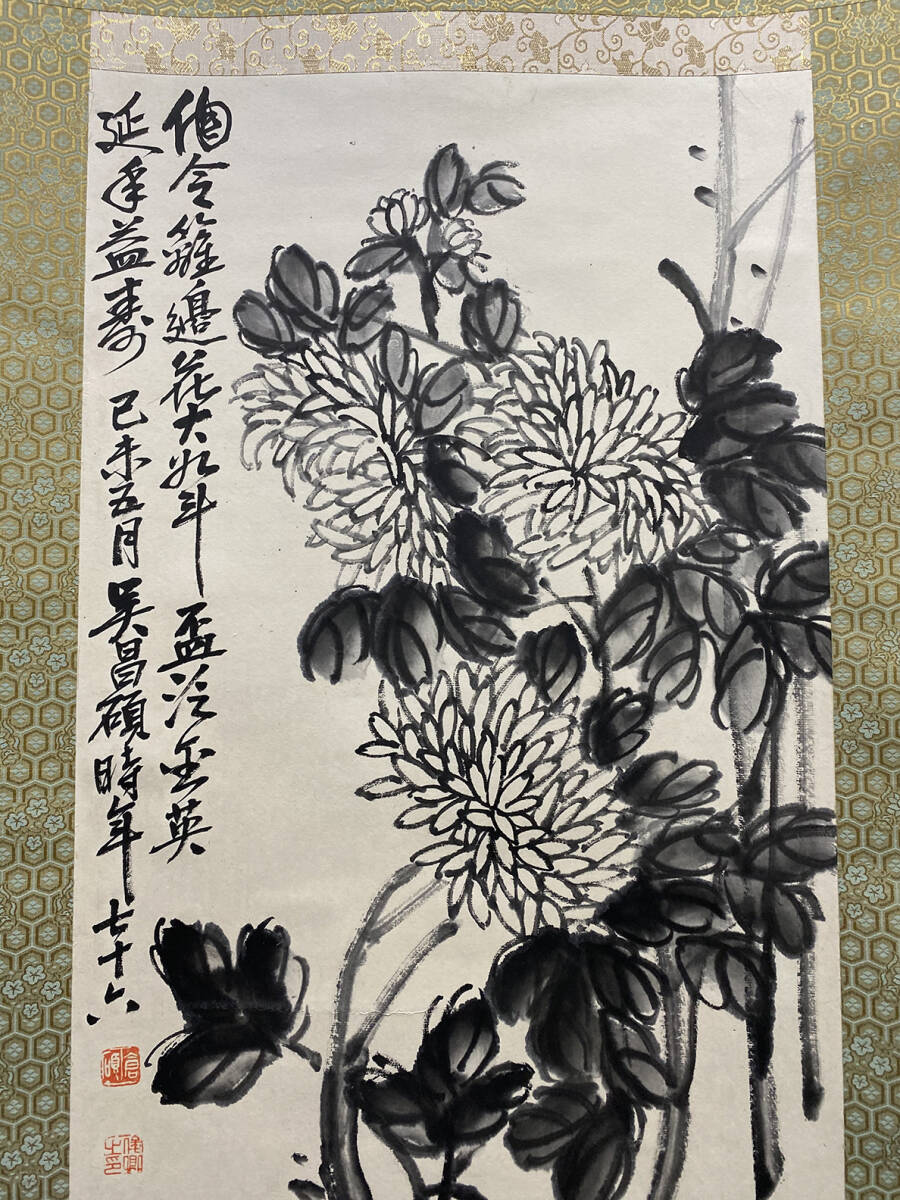 令籬邊花大如斗 盃泛金英
延年益壽 己未五月 吳昌碩時年七十六
倉碩
俊卿之印